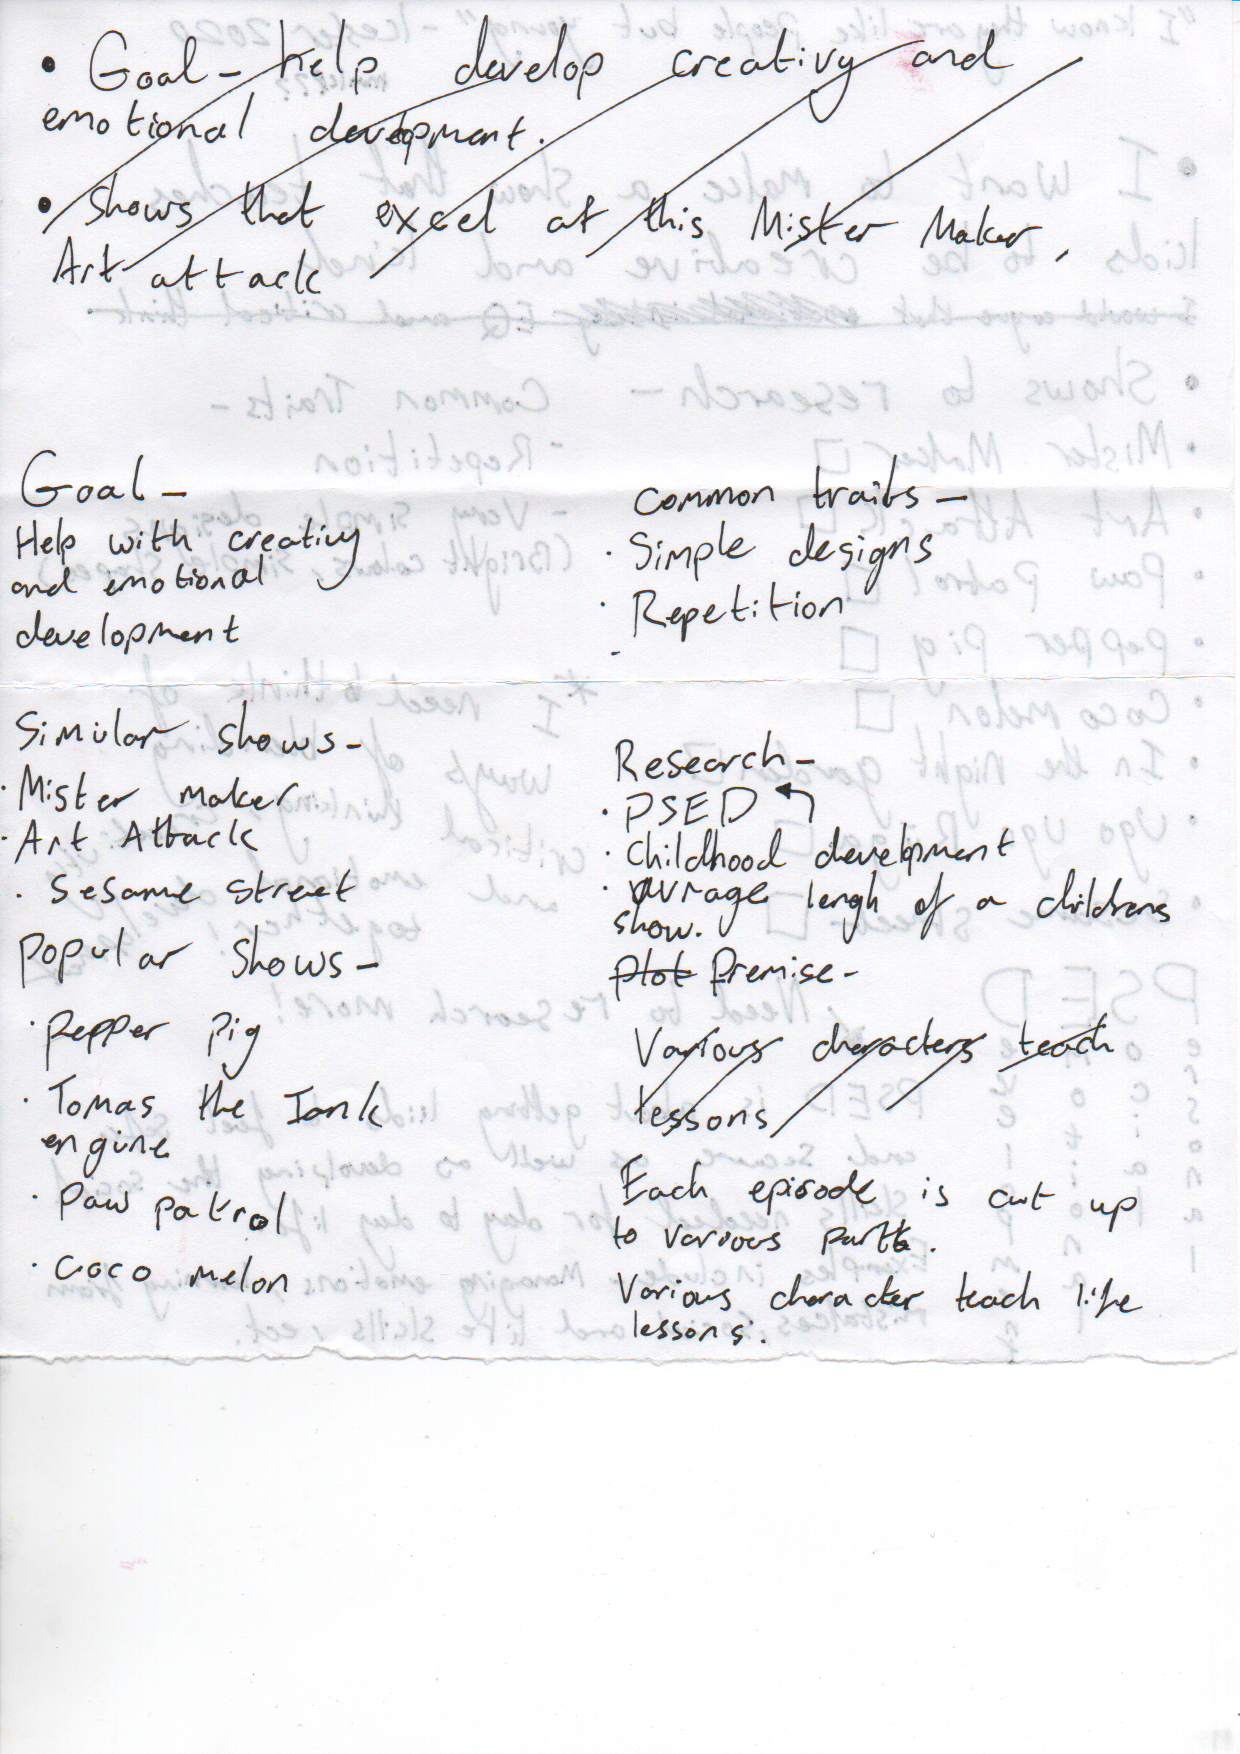 • Goal - help develop creativy and
emotional devenpment.
• Shows that excel at this Mister Maker,
Art attack
Goal -
Help with creativy
and emotional
development
Common traits -
· Simple designs
· Repetition
-
Simular shows -
· Mister maker
· Art Attack
· Sesame street
Popular shows -
· Pepper pig
· Tomas the Tank
engine
· Paw patrol
· Coco melon
Research -
· PSED
· Childhood development
· avrage lengh of a childrens
show.
plot Premise -
Various characters teach
lessons
Each episode is cut up
to various parts.
Various character teach life
lessons.